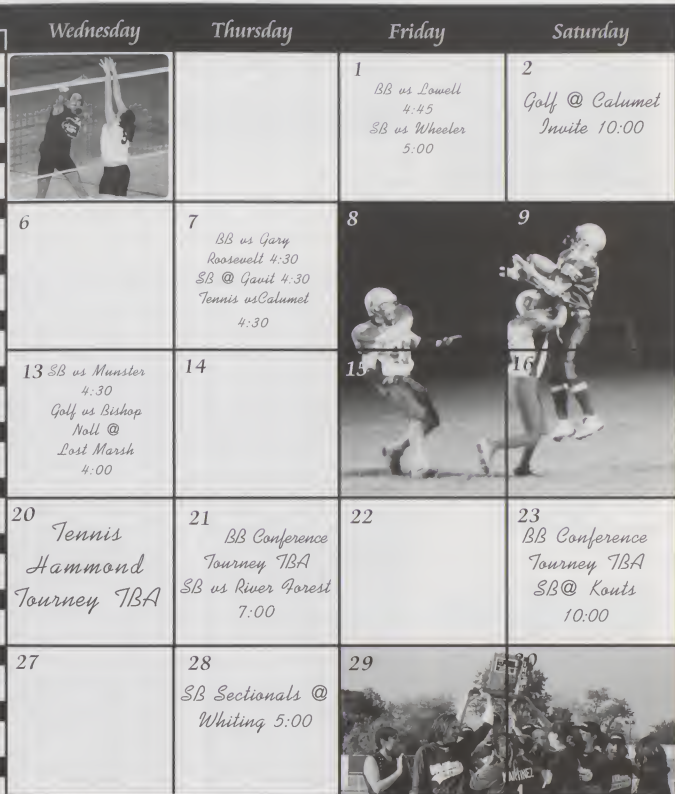 Wednesday
Thursday
Friday
Saturday
1
BB vs Lowell
4:45
SB vs Wheeler
5:00
2
Golf @ Calumet
Invite 10:00
6
7
BB vs Gary
Roosevelt 4:30
SB @ Gavit 4:30
Tennis vsCalumet
4:30
8
9
13 SB vs Munster
4:30
Golf vs Bishop
Noll @
Lost Marsh
4:00
14
15
16
20
Tennis
Hammond
Tourney TBA
21
BB Conference
Tourney TBA
SB vs River Forest
7:00
22
23
BB Conference
Tourney TBA
SB@ Kouts
10:00
27
28
SB Sectionals @
Whiting 5:00
29
30